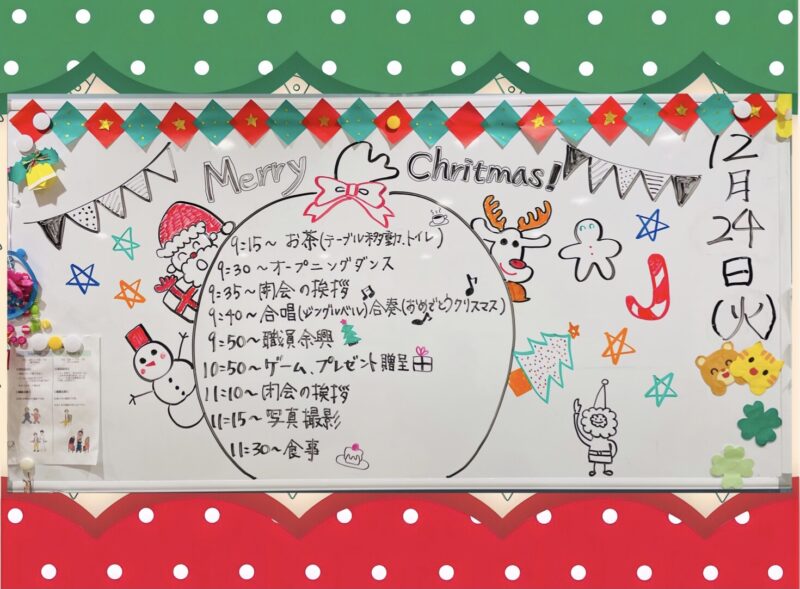 Merry Chritmas!
12月24日(火)
9:15～ お茶(テーブル移動、トイレ)
9:30～オープニングダンス
9:35～開会の挨拶
9:40～合唱(ジングルベル)合奏(おめでとうクリスマス)
9:50～職員余興
10:50～ゲーム、プレゼント贈呈
11:10～閉会の挨拶
11:15～写真撮影
11:30～食事